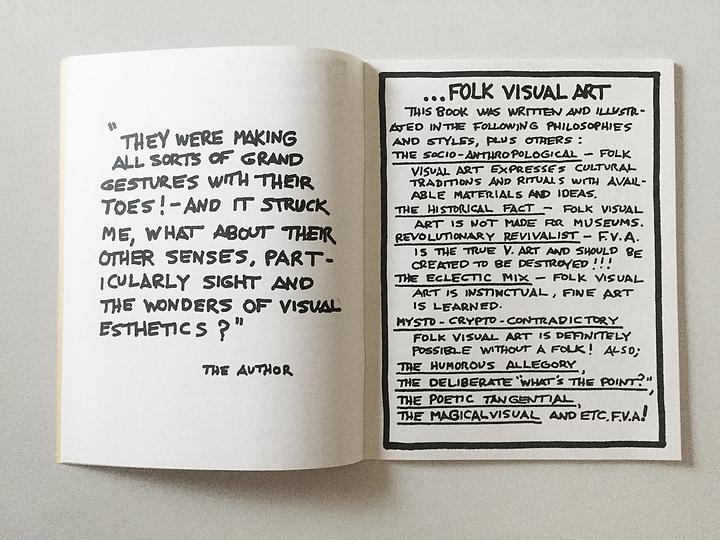 "THEY WERE MAKING
ALL SORTS OF GRAND
GESTURES WITH THEIR
TOES! - AND IT STRUCK
ME, WHAT ABOUT THEIR
OTHER SENSES, PART-
ICULARLY SIGHT AND
THE WONDERS OF VISUAL
ESTHETICS?"
THE AUTHOR
...FOLK VISUAL ART
THIS BOOK WAS WRITTEN AND ILLUSTR-
ATED IN THE FOLLOWING PHILOSOPHIES
AND STYLES, PLUS OTHERS:
THE SOCIO-ANTHROPOLOGICAL - FOLK
VISUAL ART EXPRESSES CULTURAL
TRADITIONS AND RITUALS WITH AVAIL-
ABLE MATERIALS AND IDEAS.
THE HISTORICAL FACT - FOLK VISUAL
ART IS NOT MADE FOR MUSEUMS.
REVOLUTIONARY REVIVALIST - F.V.A.
IS THE TRUE V. ART AND SHOULD BE
CREATED TO BE DESTROYED!!!
THE ECLECTIC MIX - FOLK VISUAL
ART IS INSTINCTUAL, FINE ART
IS LEARNED.
MYSTO-CRYPTO-CONTRADICTORY
FOLK VISUAL ART IS DEFINITELY
POSSIBLE WITHOUT A FOLK! ALSO;
THE HUMOROUS ALLEGORY,
THE DELIBERATE "WHAT'S THE POINT?",
THE POETIC TANGENTIAL,
THE MAGICALVISUAL AND ETC. F.V.A!